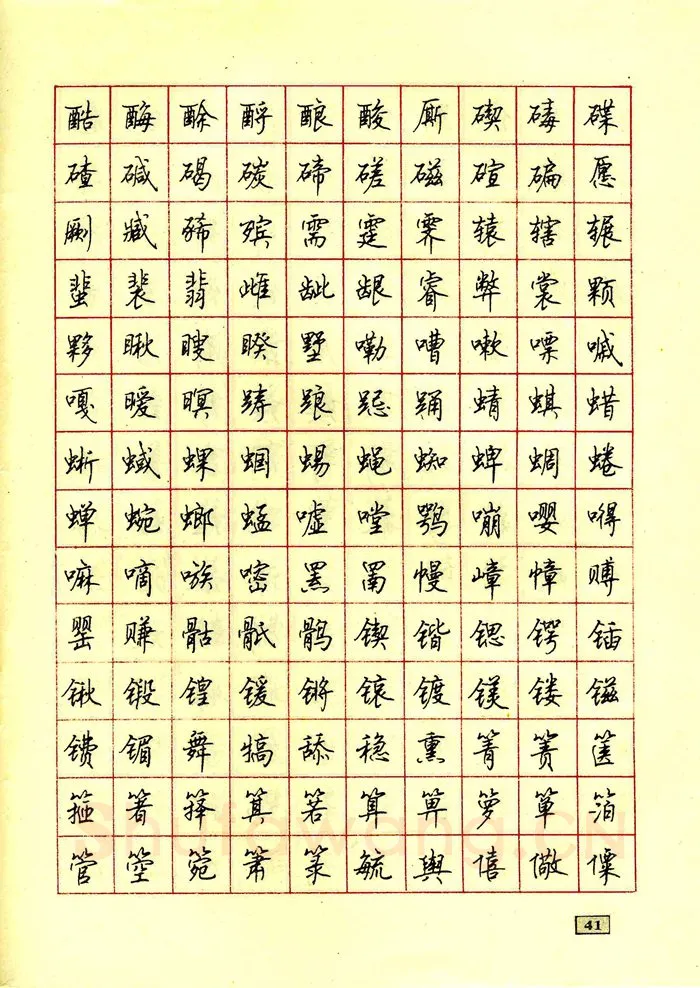 酷酶酴酹酿酸厮碶碡碟
碴碱碣碳碲磋磁碹碥愿
劂臧豨殡需霆霁辕辖辗
蜚裴翡雌龇龈睿弊裳颗
夥瞅瞍睽墅嘞嘈嗽嘌嘁
嘎暧暝踌踉跽踊蜻蜞蜡
蜥蜮蜾蝈蜴蝇蜘蜱蜩蜷
蝉蜿螂蜢嘘嘡鹗嘣嘤嘚
嘛嘀嗾嘧罴罱幔嶂幛赙
罂赚骷骶鹘锲锴锶锷锸
锹锻锽锾锵锿镀镁镂镃
镄镅舞犒舔稳熏箐箦箧
箍箸箨箕箬算箅箩箪箔
Shufawang.cn
管箜箢箫箓毓舆僖儆僳
41